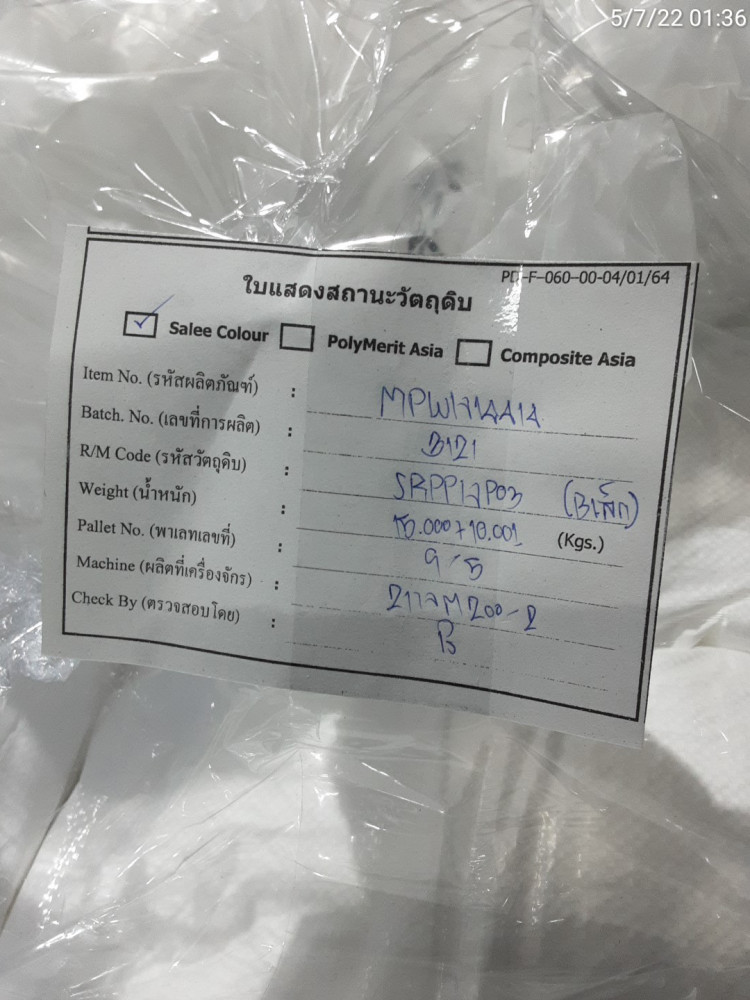 5/7/22 01:36
PD-F-060-00-04/01/64
ใบแสดงสถานะวัตถุดิบ
Salee Colour PolyMerit Asia Composite Asia
Item No. (รหัสผลิตภัณฑ์) :
Batch. No. (เลขที่การผลิต) : B121
R/M Code (รหัสวัตถุดิบ) : (Bเล็ก)
Weight (น้ำหนัก) : (Kgs.)
Pallet No. (พาเลทเลขที่) : 9/5
Machine (ผลิตที่เครื่องจักร) :
Check By (ตรวจสอบโดย) : B